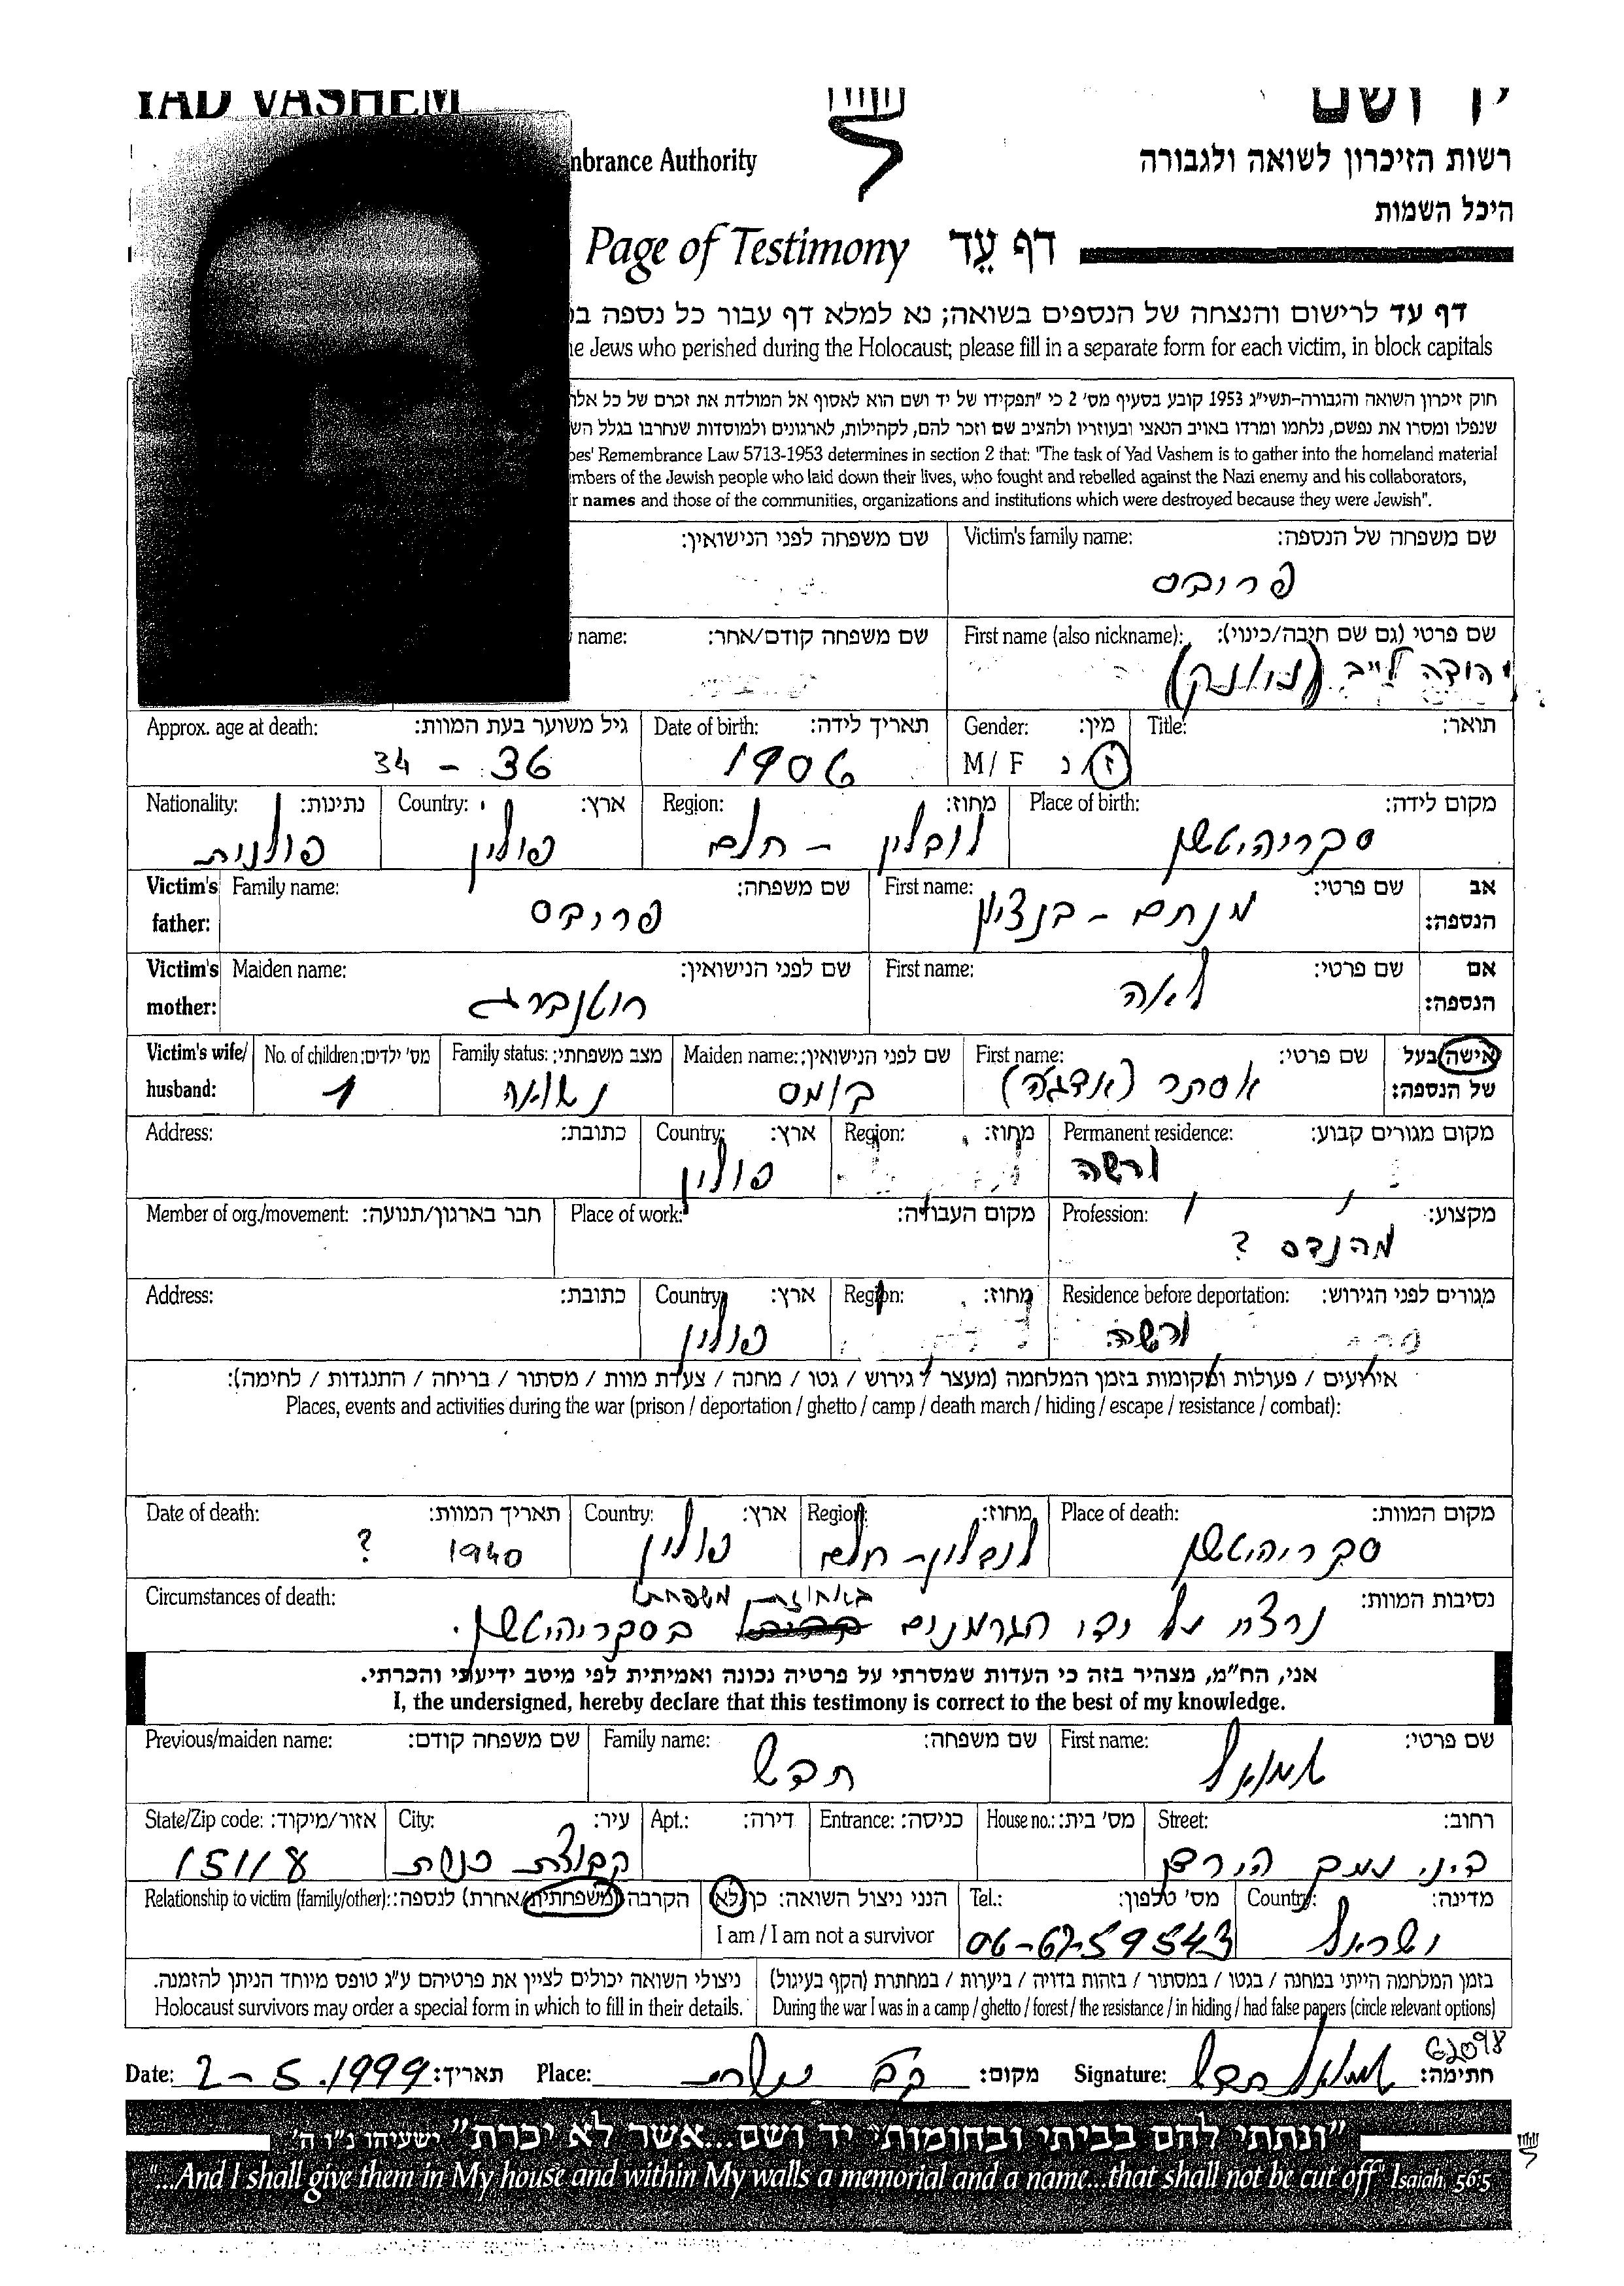 YAD VASHEM יד ושם
mbrance Authority רשות הזיכרון לשואה ולגבורה
היכל השמות
Page of Testimony דף עֵד
דף עד לרישום והנצחה של הנספים בשואה; נא למלא דף עבור כל נספה
e Jews who perished during the Holocaust; please fill in a separate form for each victim, in block capitals
חוק זיכרון השואה והגבורה-תשי"ג 1953 קובע בסעיף מס' 2 כי "תפקידו של יד ושם הוא לאסוף אל המולדת את זכרם של כל
שנפלו ומסרו את נפשם, נלחמו ומרדו באויב הנאצי ובעוזריו ולהציב שם וזכר להם, לקהילות, לארגונים ולמוסדות שנחרבו בגלל
oes' Remembrance Law 5713-1953 determines in section 2 that: "The task of Yad Vashem is to gather into the homeland material
mbers of the Jewish people who laid down their lives, who fought and rebelled against the Nazi enemy and his collaborators,
r names and those of the communities, organizations and institutions which were destroyed because they were Jewish".
שם משפחה של הנספה: Victim's family name: שם משפחה לפני הנישואין:
פריבס
שם פרטי (גם שם חיבה/כינוי): First name (also nickname): שם משפחה קודם/אחר: name:
יהודה לייב
תואר: Title: מין: Gender: תאריך לידה: Date of birth: גיל משוער בעת המוות: Approx. age at death:
ז/נ M / F 1906 36 - 34
מקום לידה: Place of birth: מחוז: Region: ארץ: Country: נתינות: Nationality:
סבריהיטשן לובלין - חלם פולין פולנית
אב הנספה: שם פרטי: First name: שם משפחה: Family name: Victim's father:
מנחם - בנציון פריבס
אם הנספה: שם פרטי: First name: שם לפני הנישואין: Maiden name: Victim's mother:
לאה רוטנברג
אישה/בעל של הנספה: שם פרטי: First name: שם לפני הנישואין: Maiden name: מצב משפחתי: Family status: מס' ילדים: No. of children: Victim's wife/ husband:
אסתר נשואה 1
מקום מגורים קבוע: Permanent residence: מחוז: Region: ארץ: Country: כתובת: Address:
ורשה פולין
מקצוע: Profession: מקום העבודה: Place of work: חבר בארגון/תנועה: Member of org./movement:
מהנדס ?
מגורים לפני הגירוש: Residence before deportation: מחוז: Region: ארץ: Country: כתובת: Address:
ורשה פולין
אירועים / פעולות ומקומות בזמן המלחמה (מעצר / גירוש / גטו / מחנה / צעדת מוות / מסתור / בריחה / התנגדות / לחימה):
Places, events and activities during the war (prison / deportation / ghetto / camp / death march / hiding / escape / resistance / combat):
מקום המוות: Place of death: מחוז: Region: ארץ: Country: תאריך המוות: Date of death:
סבריהיטשן לובלין - חלם פולין 1940 ?
נסיבות המוות: Circumstances of death:
באחוזת משפחתו
נרצח על ידי הגרמנים בסבריהיטשן.
אני, הח"מ, מצהיר בזה כי העדות שמסרתי על פרטיה נכונה ואמיתית לפי מיטב ידיעתי והכרתי.
I, the undersigned, hereby declare that this testimony is correct to the best of my knowledge.
שם פרטי: First name: שם משפחה: Family name: שם משפחה קודם: Previous/maiden name:
שמואל חבש
רחוב: Street: מס' בית: House no.: כניסה: Entrance: דירה: Apt.: עיר: City: אזור/מיקוד: State/Zip code:
קבוצת כנרת 15118
מדינה: Country: מס' טלפון: Tel.: הנני ניצול השואה: כן/לא הקרבה (משפחתית/אחרת) לנספה: Relationship to victim (family/other):
ישראל 06-6759543 I am / I am not a survivor
בזמן המלחמה הייתי במחנה / בגטו / במסתור / בזהות בדויה / ביערות / במחתרת (הקף בעיגול) ניצולי השואה יכולים לציין את פרטיהם ע"ג טופס מיוחד הניתן להזמנה.
During the war I was in a camp / ghetto / forest / the resistance / in hiding / had false papers (circle relevant options) Holocaust survivors may order a special form in which to fill in their details.
חתימה: שמואל חבש Signature: מקום: Place: תאריך: 2-5.1999 Date:
"ונתתי להם בביתי ובחומותי יד ושם...אשר לא יכרת" ישעיהו נ"ו ה'
"...And I shall give them in My house and within My walls a memorial and a name...that shall not be cut off" Isaiah, 56:5